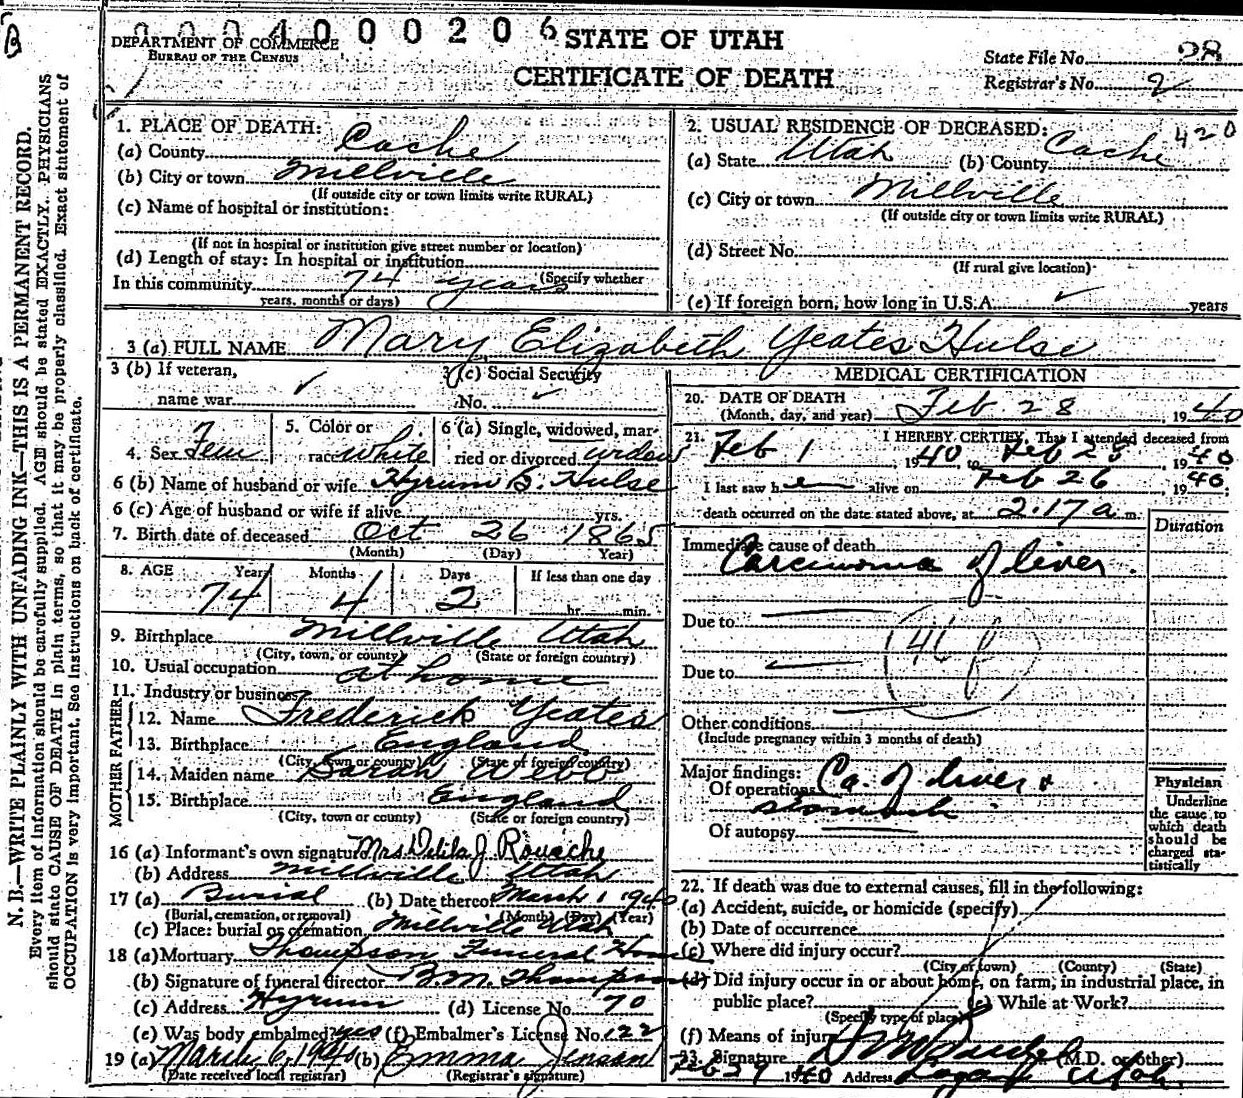 0004000206
DEPARTMENT OF COMMERCE
BUREAU OF THE CENSUS
STATE OF UTAH
CERTIFICATE OF DEATH
State File No. 28
Registrar's No. 2
N. B.—WRITE PLAINLY WITH UNFADING INK—THIS IS A PERMANENT RECORD.
Every item of information should be carefully supplied. AGE should be stated EXACTLY. PHYSICIANS
should state CAUSE OF DEATH in plain terms, so that it may be properly classified. Exact statement of
OCCUPATION is very important. See instructions on back of certificate.
1. PLACE OF DEATH:
(a) County Cache
(b) City or town Millville
(If outside city or town limits write RURAL)
(c) Name of hospital or institution:
(If not in hospital or institution give street number or location)
(d) Length of stay: In hospital or institution
(Specify whether
In this community 74 years
years, months or days)
2. USUAL RESIDENCE OF DECEASED: 420
(a) State Utah (b) County Cache
(c) City or town Millville
(If outside city or town limits write RURAL)
(d) Street No.
(If rural give location)
(e) If foreign born, how long in U.S.A. ✓ years
3 (a) FULL NAME Mary Elizabeth Yeates Hulse
3 (b) If veteran,
name war ✓
3 (c) Social Security
No. ✓
4. Sex Fem
5. Color or
race White
6 (a) Single, widowed, mar-
ried or divorced widow
6 (b) Name of husband or wife Hyrum B. Hulse
6 (c) Age of husband or wife if alive yrs.
7. Birth date of deceased Oct 26 1865
(Month) (Day) Year)
8. AGE Year Months Days If less than one day
74 4 2 hr. min.
9. Birthplace Millville Utah
(City, town, or county) (State or foreign country)
10. Usual occupation at home
11. Industry or business
FATHER
12. Name Frederick Yeates
13. Birthplace England
(City, town or county) (State of foreign country)
MOTHER
14. Maiden name Sarah Webb
15. Birthplace England
(City, town or county) (State or foreign country)
16 (a) Informant's own signature Mrs. Delila J.
(b) Address Millville Utah
17 (a) Burial (b) Date thereof March 1 1940
(Burial, cremation, or removal) (Month) (Day) (Year)
(c) Place: burial or cremation Millville Utah
18 (a) Mortuary Thompson Funeral Home
(b) Signature of funeral director B.M. Thompson
(c) Address Hyrum (d) License No. 70
(e) Was body embalmed? yes (f) Embalmer's License No. 122
19 (a) March 6, 1940 (b) Emma Jenson
(Date received local registrar) (Registrar's signature)
MEDICAL CERTIFICATION
20. DATE OF DEATH
(Month, day, and year) Feb 28, 1940
21. I HEREBY CERTIFY, That I attended deceased from
Feb 1, 1940, to Feb 28, 1940
I last saw her alive on Feb 26, 1940;
death occurred on the date stated above, at 2:17 a m.
Duration
Immediate cause of death
Carcinoma of liver.
Due to
46 f
Due to
Other conditions
(Include pregnancy within 3 months of death)
Major findings:
Of operations Ca. of liver &
stomach
Of autopsy
Physician
Underline
the cause to
which death
should be
charged sta-
tistically
22. If death was due to external causes, fill in the following:
(a) Accident, suicide, or homicide (specify)
(b) Date of occurrence
(c) Where did injury occur?
(City or town) (County) (State)
(d) Did injury occur in or about home, on farm, in industrial place, in
public place? (e) While at Work?
(Specify type of place)
(f) Means of injury
23. Signature (M.D. or other)
Feb 29 1940 Address Logan Utah.